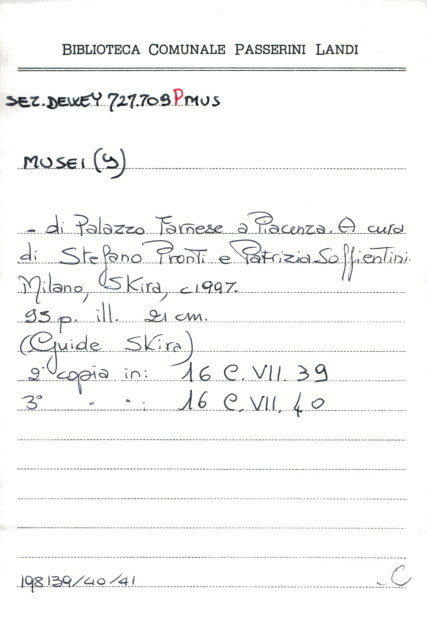 BIBLIOTECA COMUNALE PASSERINI LANDI
SEZ. DEWEY 727.709 P MUS
MUSEI (9)
- di Palazzo Farnese a Piacenza. A cura
di Stefano Pronti e Patrizia Soffientini.
Milano, Skira, c1997.
95 p. ill. 21 cm.
(Guide Skira)
2ª copia in: 16 C. VII. 39
3ª " ": 16 C. VII. 40
198139/40/41
_C